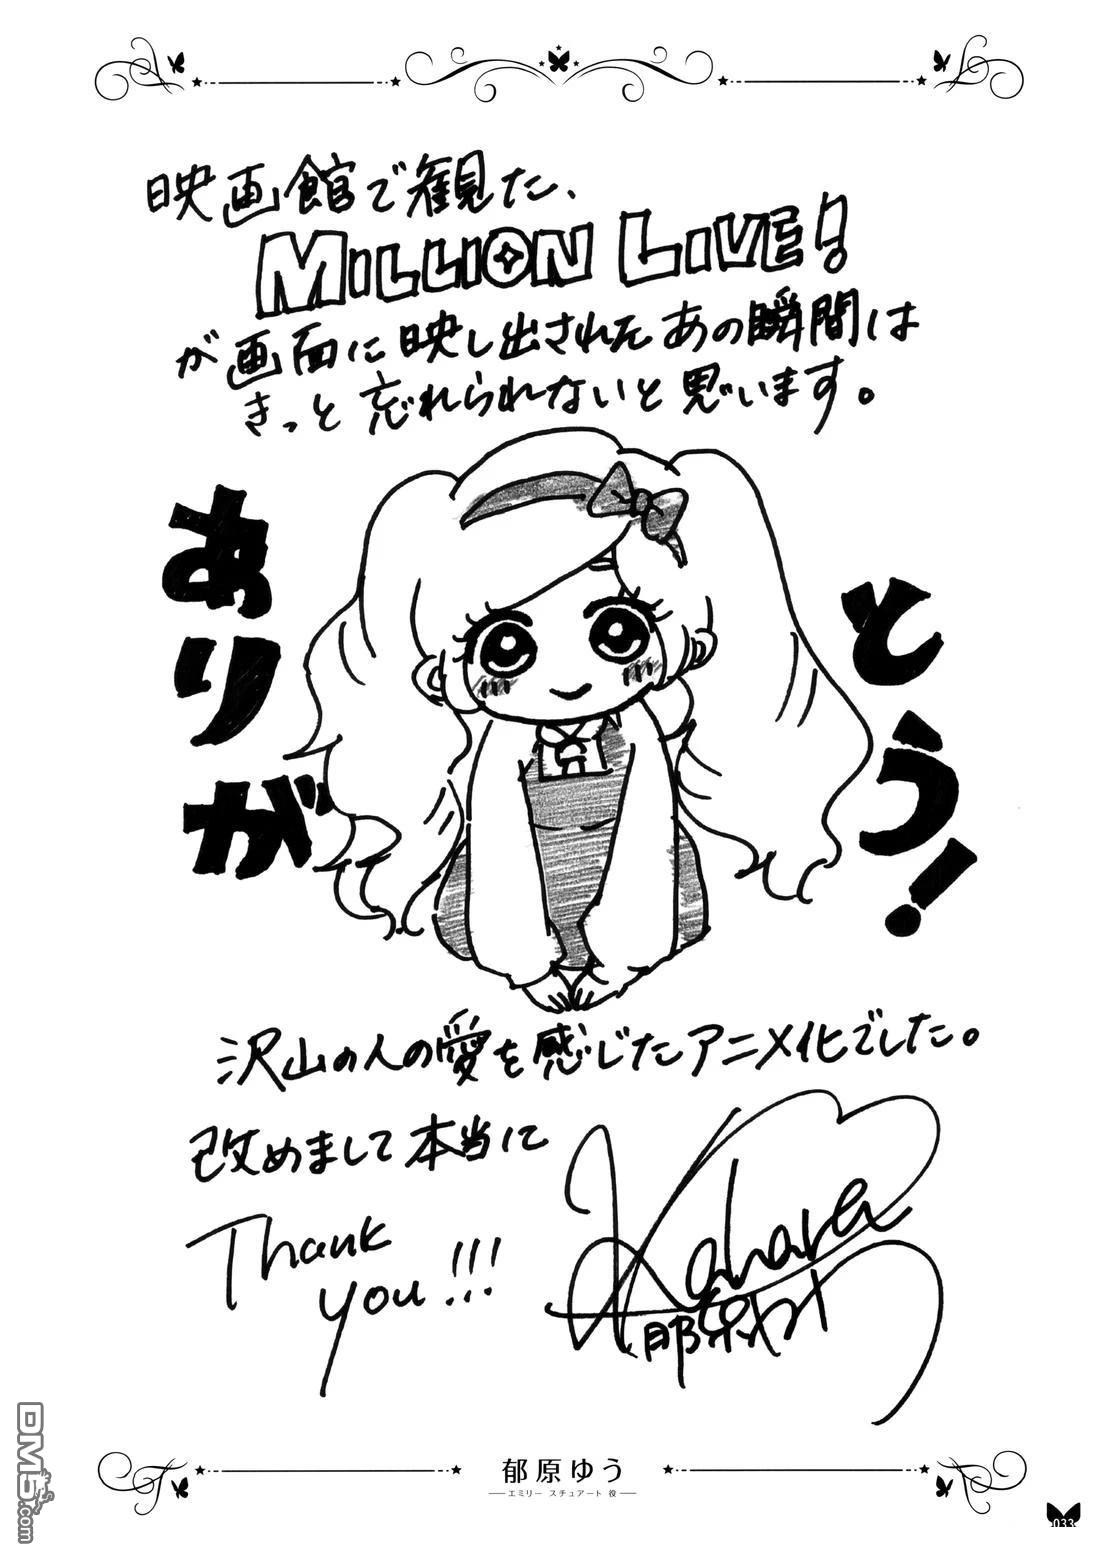 映画館で観た、
MILLION LIVE!
が画面に映し出されたあの瞬間は
きっと忘れられないと思います。
ありが
とう!
沢山の人の愛を感じたアニメ化でした。
改めまして本当に
Thank
you!!!
郁原ゆう
エミリー スチュアート 役
033
DM5.com